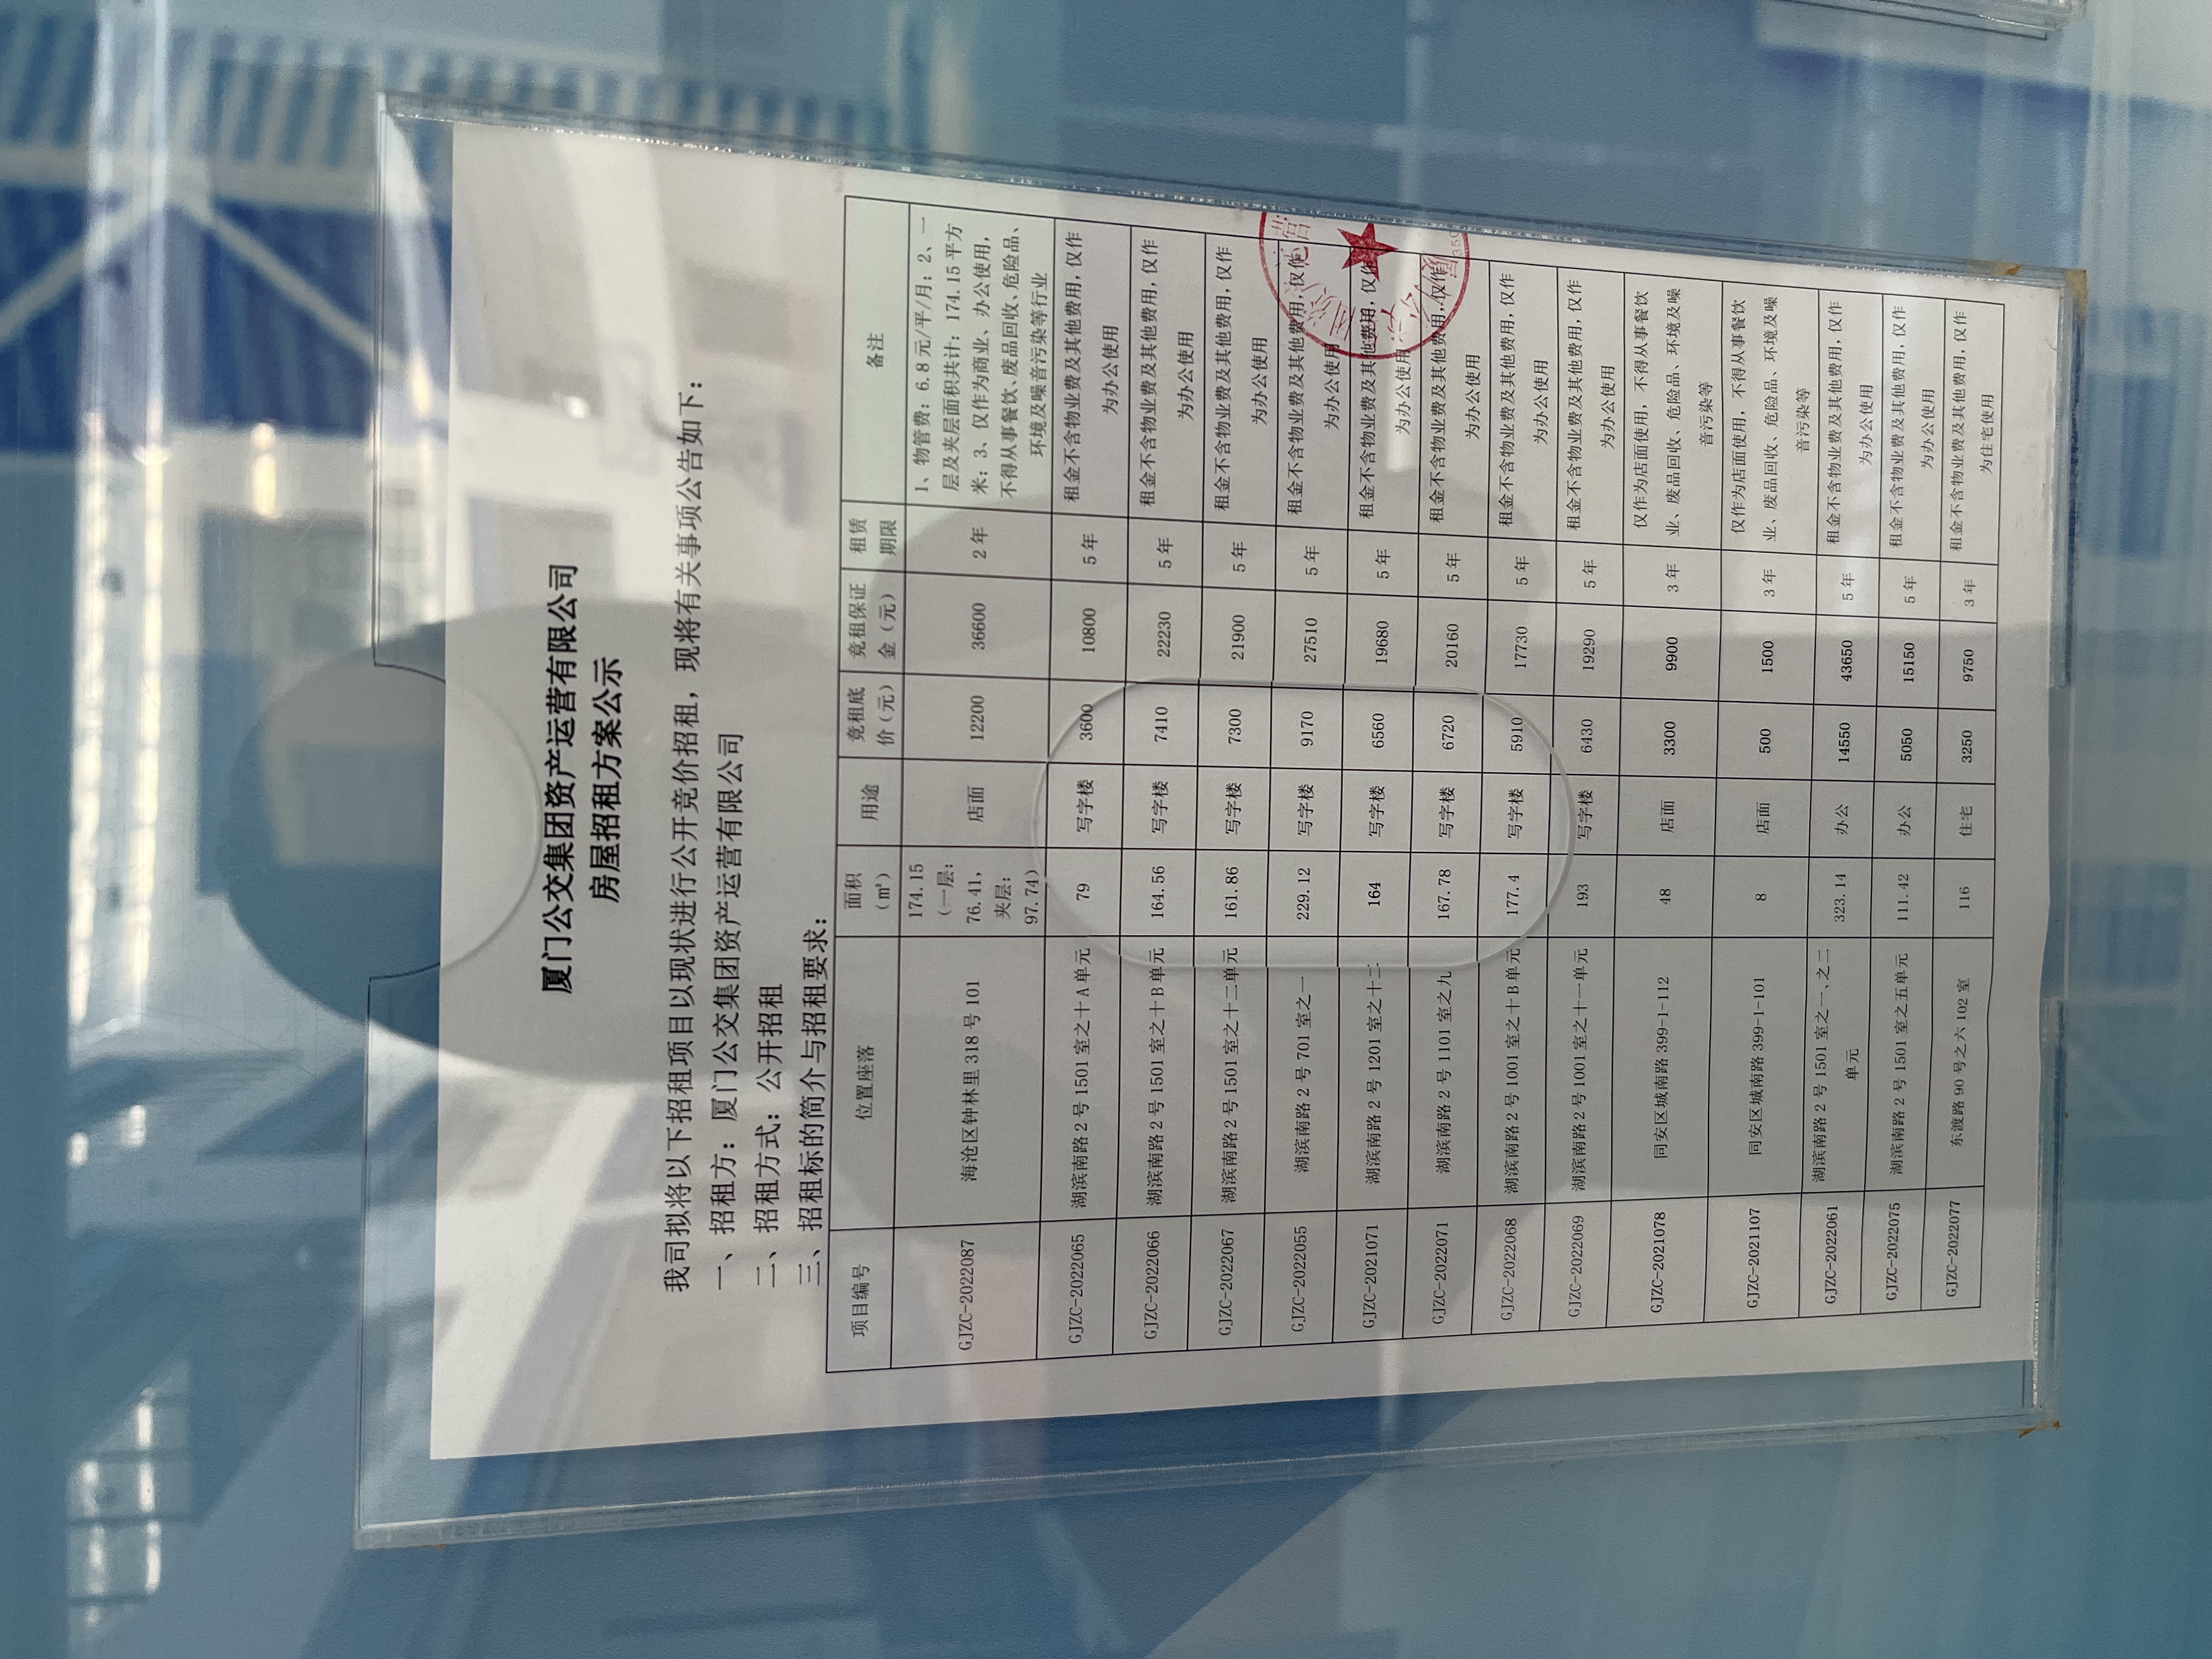 厦门公交集团资产运营有限公司
房屋招租方案公示
我司拟将以下招租项目以现状进行公开竞价招租，现将有关事项公告如下：
一、招租方：厦门公交集团资产运营有限公司
二、招租方式：公开招租
三、招租标的简介与招租要求：
项目编号 位置座落 面积（㎡） 用途 竞租底价（元） 竞租保证金（元） 租赁期限 备注
GJZC-2022087 海沧区钟林里 318 号 101 174.15（一层：76.41，夹层：97.74） 店面 12200 36600 2 年 1、物管费：6.8 元/平/月；2、一层及夹层面积共计：174.15 平方米；3、仅作为商业、办公使用，不得从事餐饮、废品回收、危险品、环境及噪音污染等行业
GJZC-2022065 湖滨南路 2 号 1501 室之十 A 单元 79 写字楼 3600 10800 5 年 租金不含物业费及其他费用，仅作为办公使用
GJZC-2022066 湖滨南路 2 号 1501 室之十 B 单元 164.56 写字楼 7410 22230 5 年 租金不含物业费及其他费用，仅作为办公使用
GJZC-2022067 湖滨南路 2 号 1501 室之十二单元 161.86 写字楼 7300 21900 5 年 租金不含物业费及其他费用，仅作为办公使用
GJZC-2022055 湖滨南路 2 号 701 室之一 229.12 写字楼 9170 27510 5 年 租金不含物业费及其他费用，仅作为办公使用
GJZC-2021071 湖滨南路 2 号 1201 室之十二 164 写字楼 6560 19680 5 年 租金不含物业费及其他费用，仅作为办公使用
GJZC-2022071 湖滨南路 2 号 1101 室之九 167.78 写字楼 6720 20160 5 年 租金不含物业费及其他费用，仅作为办公使用
GJZC-2022068 湖滨南路 2 号 1001 室之十 B 单元 177.4 写字楼 5910 17730 5 年 租金不含物业费及其他费用，仅作为办公使用
GJZC-2022069 湖滨南路 2 号 1001 室之十一单元 193 写字楼 6430 19290 5 年 租金不含物业费及其他费用，仅作为办公使用
GJZC-2021078 同安区城南路 399-1-112 48 店面 3300 9900 3 年 仅作为店面使用，不得从事餐饮业、废品回收、危险品、环境及噪音污染等
GJZC-2021107 同安区城南路 399-1-101 8 店面 500 1500 3 年 仅作为店面使用，不得从事餐饮业、废品回收、危险品、环境及噪音污染等
GJZC-2022061 湖滨南路 2 号 1501 室之一、之二单元 323.14 办公 14550 43650 5 年 租金不含物业费及其他费用，仅作为办公使用
GJZC-2022075 湖滨南路 2 号 1501 室之五单元 111.42 办公 5050 15150 5 年 租金不含物业费及其他费用，仅作为办公使用
GJZC-2022077 东渡路 90 号之六 102 室 116 住宅 3250 9750 3 年 租金不含物业费及其他费用，仅作为住宅使用